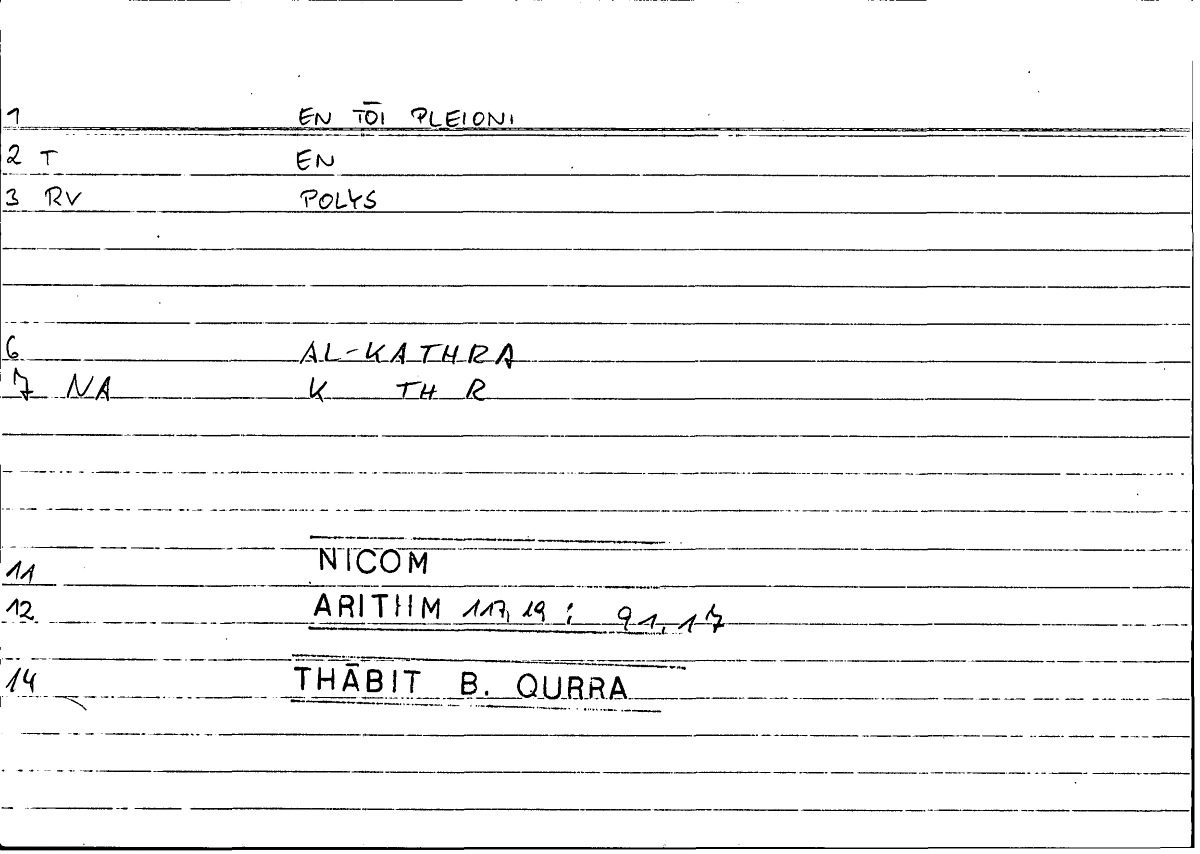 1 EN TŌI PLEIONI
2 T EN
3 RV POLYS
6 AL-KATHRA
7 NA K TH R
11 NICOM
12 ARITHM 117,19 : 91,17
14 THĀBIT B. QURRA